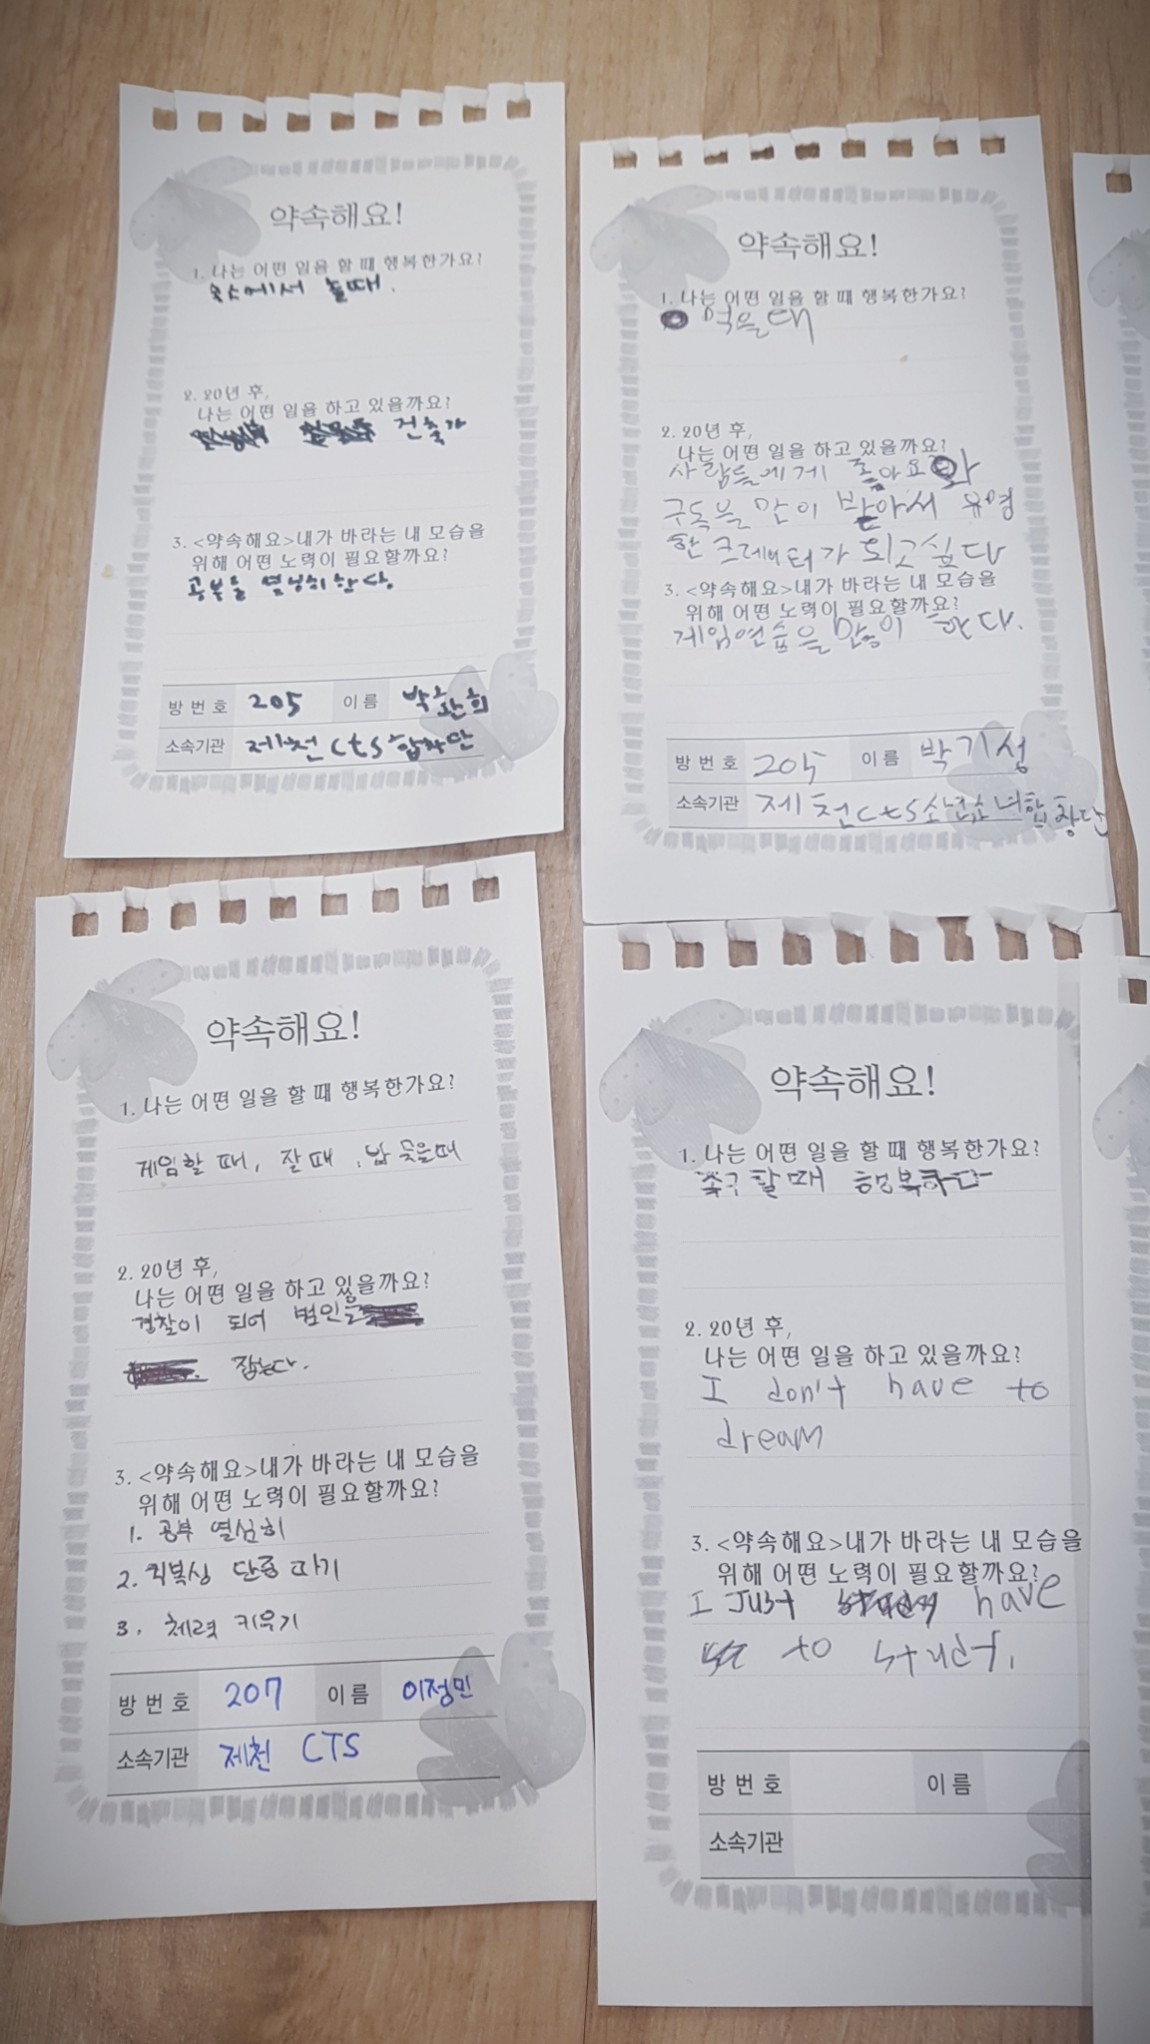 약속해요!
1. 나는 어떤 일을 할 때 행복한가요?
숙소에서 놀때.
2. 20년 후,
나는 어떤 일을 하고 있을까요?
건축가
3. <약속해요>내가 바라는 내 모습을
위해 어떤 노력이 필요할까요?
공부를 열심히 한다
방 번호 205 이름 박환희
소속기관 제천 cts 합창단
약속해요!
1. 나는 어떤 일을 할 때 행복한가요?
먹을때
2. 20년 후,
나는 어떤 일을 하고 있을까요?
사람들에게 좋아요와
구독을 만이 받아서 유명
한 크레에터가 되고싶다
3. <약속해요>내가 바라는 내 모습을
위해 어떤 노력이 필요할까요?
게임연습을 많이 한다.
방 번호 205 이름 박기성
소속기관 제천cts소년소녀합창단
약속해요!
1. 나는 어떤 일을 할 때 행복한가요?
게임할 때, 잘때, 밥 먹을때
2. 20년 후,
나는 어떤 일을 하고 있을까요?
경찰이 되어 범인을
잡는다.
3. <약속해요>내가 바라는 내 모습을
위해 어떤 노력이 필요할까요?
1. 공부 열심히
2. 킥복싱 단증 따기
3. 체력 키우기
방 번호 207 이름 이정민
소속기관 제천 CTS
약속해요!
1. 나는 어떤 일을 할 때 행복한가요?
축구 할때 행복하다
2. 20년 후,
나는 어떤 일을 하고 있을까요?
I don't have to
dream
3. <약속해요>내가 바라는 내 모습을
위해 어떤 노력이 필요할까요?
I Just have
to study.
방 번호 이름
소속기관